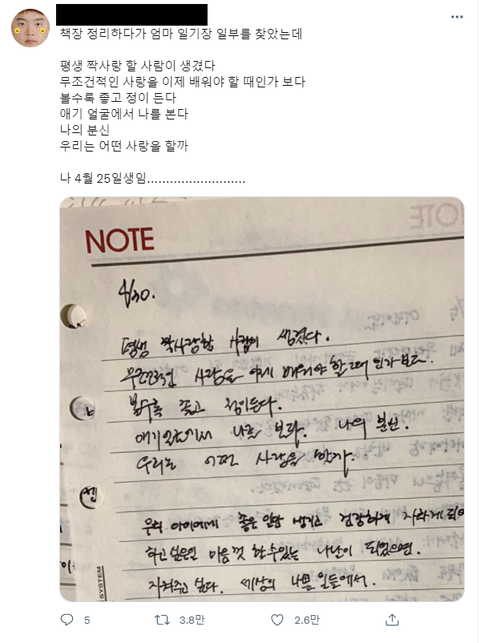 책장 정리하다가 엄마 일기장 일부를 찾았는데
평생 짝사랑 할 사람이 생겼다
무조건적인 사랑을 이제 배워야 할 때인가 보다
볼수록 좋고 정이 든다
애기 얼굴에서 나를 본다
나의 분신
우리는 어떤 사랑을 할까
나 4월 25일생임..........................
NOTE
4/30.
평생 짝사랑할 사람이 생겼다.
무조건적인 사랑을 이제 배워야 할 때 인가보다.
볼수록 좋고 정이든다.
애기 얼굴에서 나를 본다. 나의 분신.
우리는 어떤 사랑을 할까.
우리 아이에게 좋은 일만 생기고 건강하게 자라게 되어
하고싶은일 마음껏 할수있는 나날이 되었으면.
지켜주고 싶다. 세상의 나쁜 일들에서.
SYSTEM
5 3.8만 2.6만